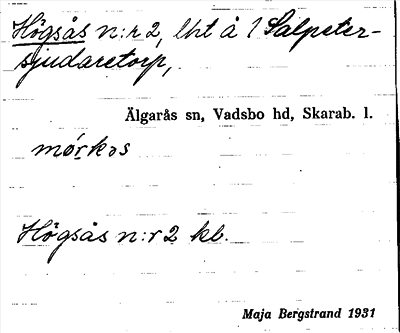 Högsås n:r 2, lht å 1 Salpeter-
sjudaretorp,
Älgarås sn, Vadsbo hd, Skarab. l.
Högsås n:r 2 kb.
Maja Bergstrand 1931